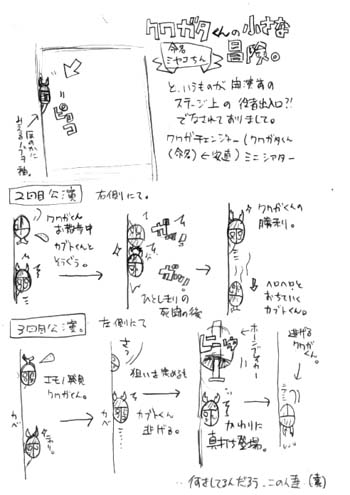 クワガタくんの小さな
冒険。
命名
ミヤコちん
と、いうものが 由演省の
ステージ上の 役者出入口?!
でなされておりまして。
クワガチェンジャー(クワガタくん
(命名) ← 改造) ミニシアター
ピョコ
ほのかに
みえるハブタ
袖。
2回目公演
右側にて。
クワガくん
お散歩中
カブトくんと
そうぐう。
ガッ!
ガッ!
ひとしきりの
死闘の後
クワガタくんの
勝利。
ヘロヘロと
おちていく
カブトくん。
3回目公演。
左側にて
エモノ発見
クワガくん。
カベ
さっ
狙いを定めるも
カブトくん
逃げる。
カベ
ホーンブレイカー
かわりに
真打ち登場。
逃げる
クワガくん。
何をしてるんだろう…この人達 (素)